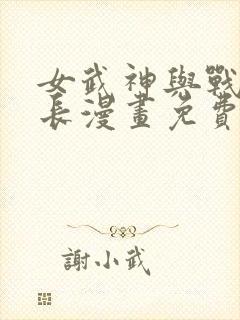 女武神與戰
長漫畫免費
謝小武